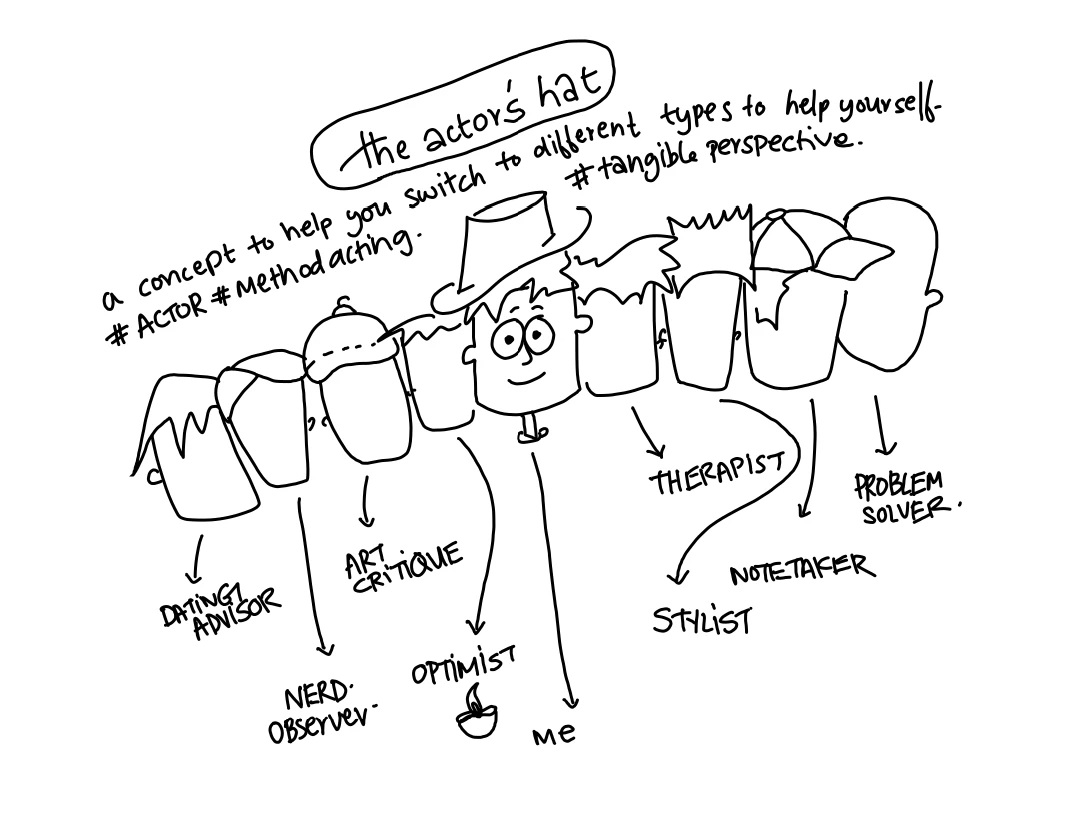 the actor's hat
a concept to help you switch to different types to help yourself-
# ACTOR # Method acting.
# tangible perspective.
DATING
ADVISOR
NERD.
OBserver-
ART
CRiTiQUE
OPTiMiST
Me
THERAPIST
STYLiST
NOTE-TAKER
PROBLEM
SOLVER.